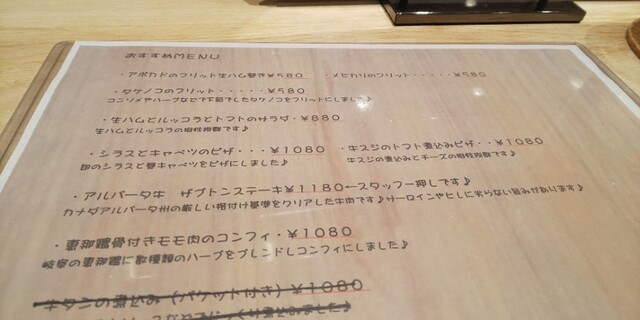 おすすめMENU
・アボカドのフリット生ハム巻き¥580 ・メヒカリのフリット・・・・・¥580
・タケノコのフリット・・・・・¥580
コンソメやハーブなどで下茹でしたタケノコをフリットにしました♪
・生ハムとルッコラとトマトのサラダ・¥880
生ハムとルッコラの相性抜群です♪
・シラスとキャベツのピザ・・・¥1080 ・牛スジのトマト煮込みピザ・・¥1080
旬のシラスと春キャベツをピザにしました♪ 牛スジの煮込みとチーズの相性抜群です♪
・アルバータ牛 ザブトンステーキ¥1180←スタッフ一押しです♪
カナダアルバータ州の厳しい格付け基準をクリアした牛肉です♪サーロインやヒレに劣らない旨みがあります♪
・恵那鶏骨付きモモ肉のコンフィ・¥1080
岐阜の恵那鶏に数種類のハーブをブレンドしコンフィにしました♪
牛タンの煮込み(バケット付き)¥1080
煮込みました♪